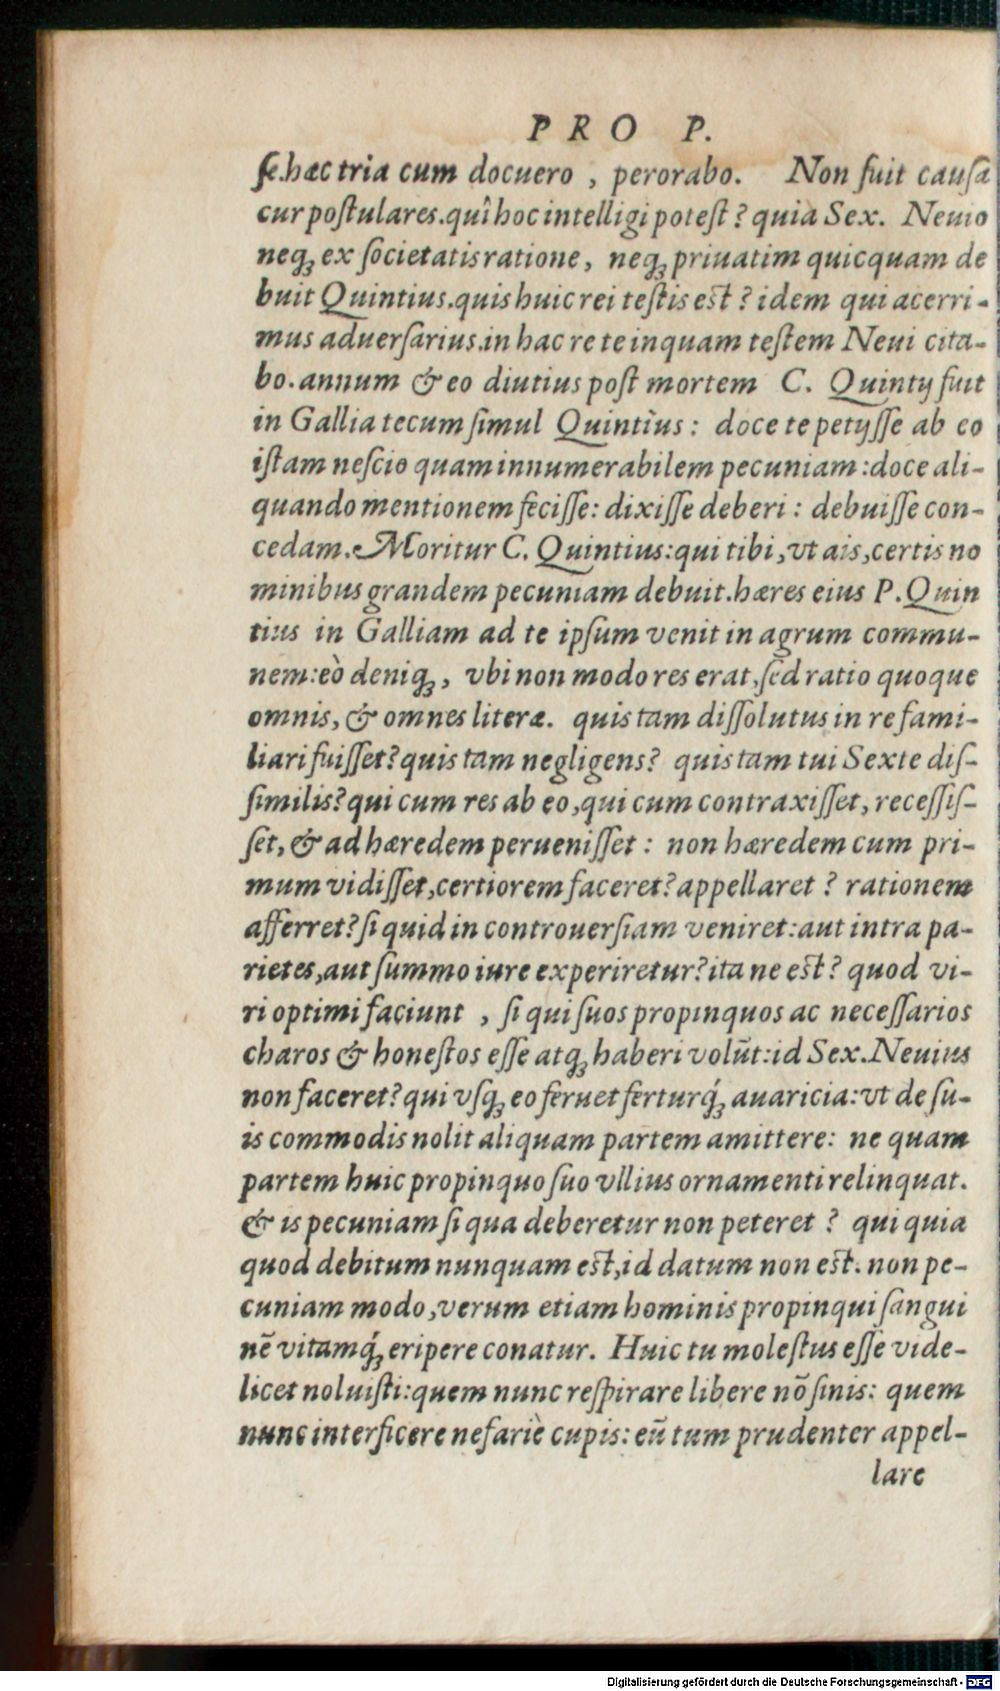 PRO P.
ſe.hæc tria cum docuero , perorabo. Non fuit cauſa
cur poſtulares.quî hoc intelligi poteſt? quia Sex. Neuio
neq; ex ſocietatis ratione, neq; priuatim quicquam de
buit Quintius.quis huic rei teſtis eſt? idem qui acerri-
mus aduerſarius.in hac re te inquam teſtem Neui cita-
bo.annum & eo diutius poſt mortem C. Quintij fuit
in Gallia tecum ſimul Quintius: doce te petijſſe ab eo
iſtam neſcio quam innumerabilem pecuniam:doce ali-
quando mentionem feciſſe: dixiſſe deberi: debuiſſe con-
cedam.Moritur C. Quintius:qui tibi,vt ais,certis no
minibus grandem pecuniam debuit.hæres eius P.Quin
tius in Galliam ad te ipſum venit in agrum commu-
nem:eò deniq;, vbi non modo res erat,ſed ratio quoque
omnis, & omnes literæ. quis tam diſſolutus in re fami-
liari fuiſſet?quis tam negligens? quis tam tui Sexte diſ-
ſimilis?qui cum res ab eo,qui cum contraxiſſet, receſſiſ-
ſet, & ad hæredem perueniſſet: non hæredem cum pri-
mum vidiſſet,certiorem faceret?appellaret? rationem
afferret?ſi quid in controuerſiam veniret:aut intra pa-
rietes,aut ſummo iure experiretur?ita ne eſt? quod vi-
ri optimi faciunt , ſi qui ſuos propinquos ac neceſſarios
charos & honeſtos eſſe atq; haberi volūt:id Sex.Neuius
non faceret?qui vſq; eo feruet ferturq́; auaricia:vt de ſu-
is commodis nolit aliquam partem amittere: ne quam
partem huic propinquo ſuo vllius ornamenti relinquat.
& is pecuniam ſi qua deberetur non peteret? qui quia
quod debitum nunquam eſt,id datum non eſt. non pe-
cuniam modo,verum etiam hominis propinqui ſangui
nē vitamq́; eripere conatur. Huic tu moleſtus eſſe vide-
licet noluiſti:quem nunc reſpirare libere nō ſinis: quem
nunc interficere nefariè cupis:eū tum prudenter appel-
lare
Digitalisierung gefördert durch die Deutsche Forschungsgemeinschaft - DFG